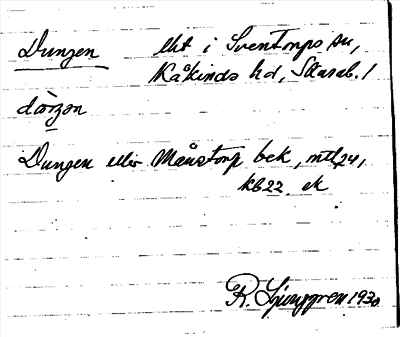 Dungen lht i Sventorps sn,
Kåkinds hd, Skarab. l
dœ̀ŋən
Dungen eller Månstorp bek, mtl 24,
kb 22 ek
R. Ljunggren 1930